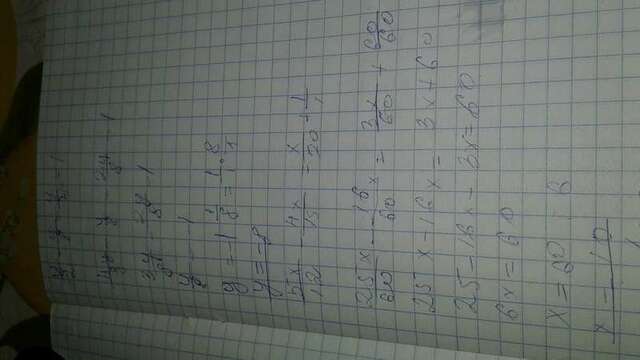 4y/8 - y/8 - 2y/8 = 1
3y/8 - 2y/8 = 1
y/8 = 1
y = -1 1/8 = 1/1 · 8/1
y = -8
5x/12 - 4x/15 = x/20 + 1/1
25x/60 - 16x/60 = 3x/60 + 60/60
25x - 16x = 3x + 60
25 - 16x - 3x = 60
6x = 60
x = 60 : 6
x = 10